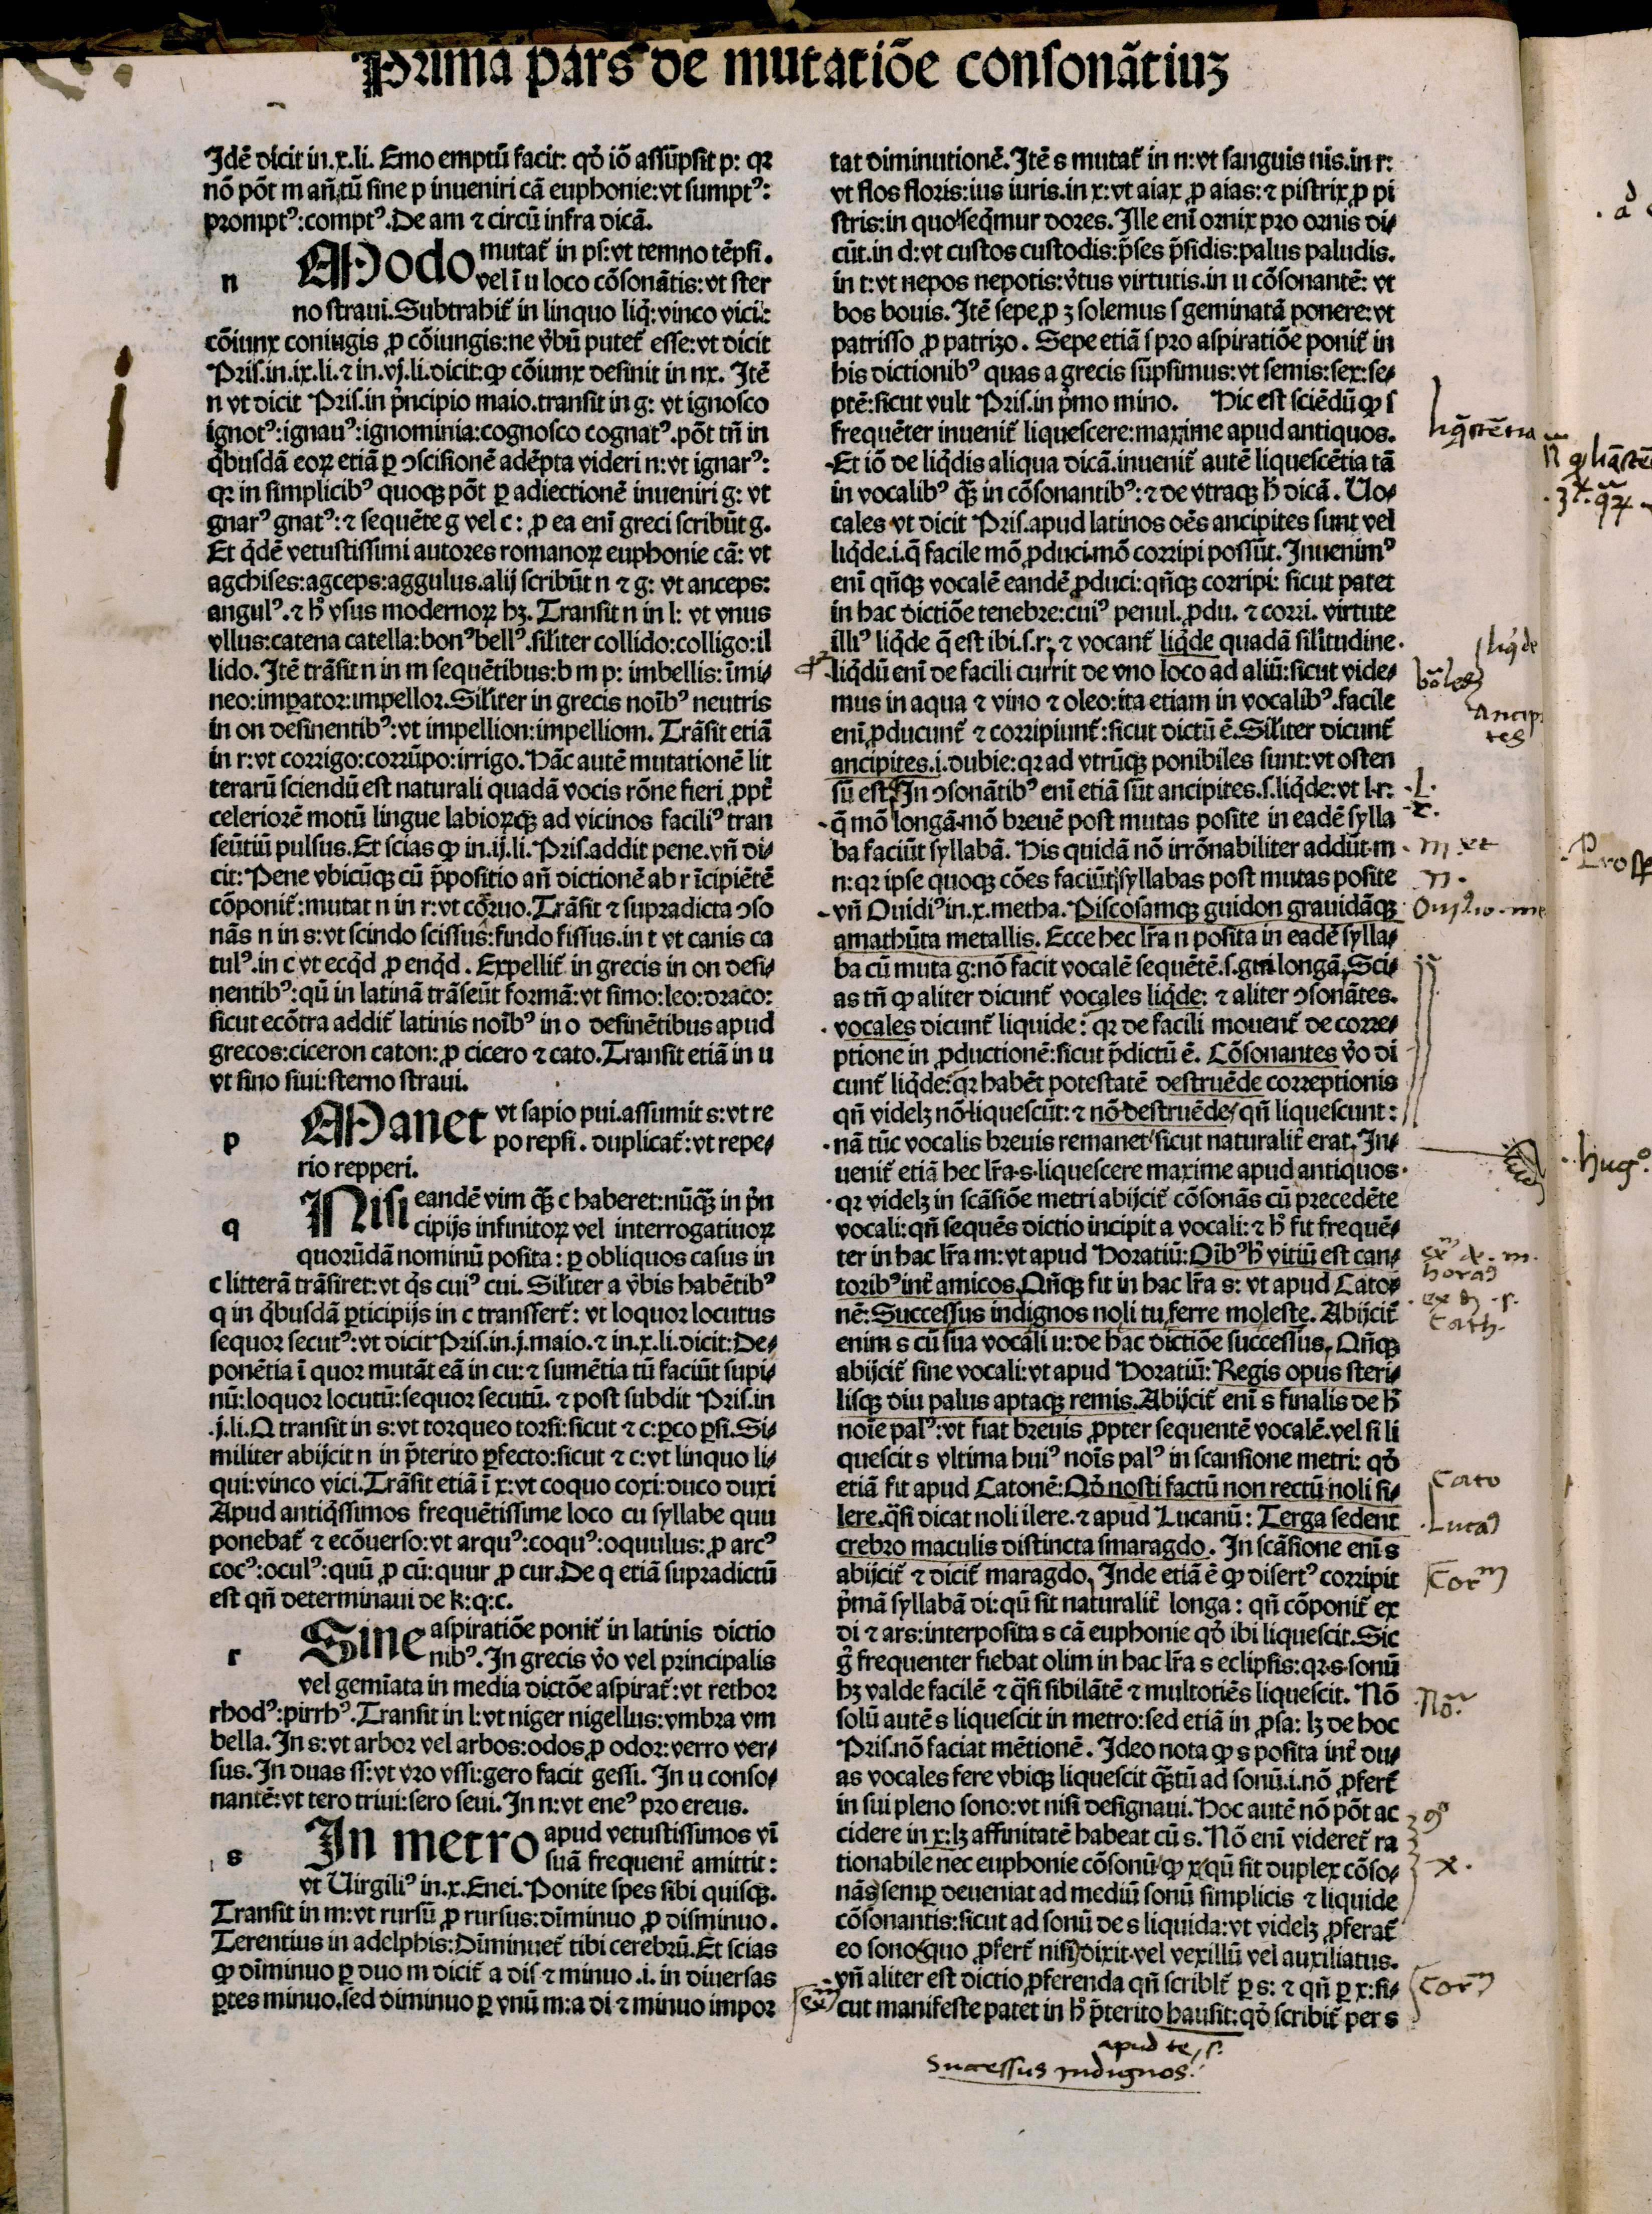 Prima pars de mutatiõe consonãtiuz
Idẽ dicit in.x.li. Emo emptũ facit: qđ iõ assũpsit p: qꝛ
nõ põt m añ tũ sine p inueniri cã euphonie: vt sumptꝰ:
promptꝰ: comptꝰ. De am ⁊ circũ infra dicã.
n
Modo mutat̃ in ps: vt temno tẽpsi.
vel ĩ u loco cõsonãtis: vt ster
no straui. Subtrahit̃ in linquo liq̃: vinco vici:
cõiunx coniugis ꝓ cõiungis: ne v̓bũ putet̃ esse: vt dicit
Pris. in.ix.li. ⁊ in.vj.li. dicit: ꝙ cõiunx desinit in nx. Itẽ
n vt dicit Pris. in p̓ncipio maio. transit in g: vt ignosco
ignotꝰ: ignauꝰ: ignominia: cognosco cognatꝰ. põt tñ in
q̓busdã eoꝝ etiã ꝑ ↄscisionẽ adẽpta videri n: vt ignarꝰ:
qꝛ in simplicibꝰ quoqꝫ põt ꝑ adiectionẽ inueniri g: vt
gnarꝰ gnatꝰ: ⁊ sequẽte g vel c: ꝓ ea enĩ greci scribũt g.
Et q̓dẽ vetustissimi autores romanoꝝ euphonie cã: vt
agchises: agceps: aggulus. alij scribũt n ⁊ g: vt anceps:
angulꝰ. ⁊ h̓ vsus modernoꝝ hꝫ. Transit n in l: vt vnus
vllus: catena catella: bonꝰ bellꝰ. siliter collido: colligo: il
lido. Itẽ trãsit n in m sequẽtibus: b m p: imbellis: ĩmi⸗
neo: imꝑator: impellor. Siliter in grecis noĩbꝰ neutris
in on desinentibꝰ: vt impellion: impelliom. Trãsit etiã
in r: vt corrigo: corrũpo: irrigo. Hãc autẽ mutationẽ lit
terarũ sciendũ est naturali quadã vocis rõne fieri ꝓpt̃
celeriorẽ motũ lingue labioꝝqꝫ ad vicinos faciliꝰ tran
seũtiũ pulsus. Et scias ꝙ in.ij.li. Pris. addit pene. vñ di⸗
cit: Pene vbicũqꝫ cũ p̃positio añ dictionẽ ab r ĩcipiẽtẽ
cõponit̃: mutat n in r: vt cõrruo. Trãsit ⁊ supradicta ↄso
nãs n in s: vt scindo scissus: findo fissus. in t vt canis ca
tulꝰ. in c vt ecq̓d ꝓ enq̓d. Expellit̃ in grecis in on desi⸗
nentibꝰ: qũ in latinã trãseũt formã: vt simo: leo: draco:
sicut ecõtra addit̃ latinis noĩbꝰ in o desinẽtibus apud
grecos: ciceron caton: ꝓ cicero ⁊ cato. Transit etiã in u
vt sino siui: sterno straui.
p
Manet vt sapio pui. assumit s: vt re
po repsi. duplicat̃: vt repe⸗
rio repperi.
q
Nisi eandẽ vim q̃ꝫ c haberet: nũq̃ꝫ in p̓n
cipijs infinitoꝝ vel interrogatiuoꝝ
quorũdã nominũ posita: ꝑ obliquos casus in
c litterã trãsiret: vt q̓s cuiꝰ cui. Siliter a v̓bis habẽtibꝰ
q in q̓busdã ꝑticipijs in c transfert̃: vt loquor locutus
sequor secutꝰ: vt dicit Pris. in.j. maio. ⁊ in.x.li. dicit: De⸗
ponẽtia ĩ quor mutãt eã in cu: ⁊ sumẽtia tũ faciũt supi⸗
nũ: loquor locutũ: sequor secutũ. ⁊ post subdit Pris. in
.j.li. Q transit in s: vt torqueo torsi: sicut ⁊ c: ꝑco ꝑsi. Si⸗
militer abijcit n in p̃terito ꝑfecto: sicut ⁊ c: vt linquo li⸗
qui: vinco vici. Trãsit etiã ĩ x: vt coquo coxi: duco duxi
Apud antiq̓ssimos frequẽtissime loco cu syllabe quu
ponebat̃ ⁊ ecõuerso: vt arquꝰ: coquꝰ: oquulus: ꝓ arcꝰ
cocꝰ: oculꝰ: quũ ꝓ cũ: quur ꝓ cur. De q etiã supradictũ
est qñ determinaui de k: q: c.
r
Sine aspiratiõe ponit̃ in latinis dictio
nibꝰ. In grecis v̓o vel principalis
vel gemĩata in media dictõe aspirat̃: vt rethor
rhodꝰ: pirrhꝰ. Transit in l: vt niger nigellus: vmbra vm
bella. In s: vt arbor vel arbos: odos ꝓ odor: verro ver⸗
sus. In duas ss: vt vro vssi: gero facit gessi. In u conso⸗
nantẽ: vt tero triui: sero seui. In n: vt eneꝰ pro ereus.
s
In metro apud vetustissimos vĩ
suã frequent̃ amittit:
vt Uirgiliꝰ in.x. Enei. Ponite spes sibi quisqꝫ.
Transit in m: vt rursũ ꝓ rursus: dĩminuo ꝓ disminuo.
Terentius in adelphis: Dĩminuet̃ tibi cerebrũ. Et scias
ꝙ dĩminuo ꝑ duo m dicit̃ a dis ⁊ minuo .i. in diuersas
ꝑtes minuo. sed diminuo ꝑ vnũ m: a di ⁊ minuo impor
tat diminutionẽ. Itẽ s mutat̃ in n: vt sanguis nis. in r:
vt flos floris: ius iuris. in x: vt aiax ꝓ aias: ⁊ pistrix ꝓ pi
stris: in quo seq̃mur dores. Ille enĩ ornix pro ornis di⸗
cũt. in d: vt custos custodis: p̃ses p̃sidis: palus paludis.
in t: vt nepos nepotis: v̓tus virtutis. in u cõsonantẽ: vt
bos bouis. Itẽ sepe ꝓ z solemus s geminatã ponere: vt
patrisso ꝓ patrizo. Sepe etiã s pro aspiratiõe ponit̃ in
his dictionibꝰ quas a grecis sũpsimus: vt semis: sex: se⸗
ptẽ: sicut vult Pris. in p̓mo mino. Hic est sciẽdũ ꝙ s
frequẽter inuenit̃ liquescere: maxime apud antiquos.
Et iõ de liq̓dis aliqua dicã. inuenit̃ autẽ liquescẽtia tã
in vocalibꝰ q̃ꝫ in cõsonantibꝰ: ⁊ de vtraqꝫ h̓ dicã. Uo⸗
cales vt dicit Pris. apud latinos oẽs ancipites sunt vel
liq̓de .i. q̃ facile mõ ꝓduci mõ corripi possũt. Inuenimꝰ
enĩ qñqꝫ vocalẽ eandẽ ꝓduci: qñqꝫ corripi: sicut patet
in hac dictiõe tenebre: cuiꝰ penul. ꝓdu. ⁊ corri. virtute
illiꝰ liq̓de q̃ est ibi .s. r: ⁊ vocant̃ liq̓de quadã silitudine.
liq̓dũ enĩ de facili currit de vno loco ad aliũ: sicut vide⸗
mus in aqua ⁊ vino ⁊ oleo: ita etiam in vocalibꝰ. facile
enĩ ꝓducunt̃ ⁊ corripiunt̃: sicut dictũ ẽ. Siliter dicunt̃
ancipites .i. dubie: qꝛ ad vtrũqꝫ ponibiles sunt: vt osten
sũ est. In ↄsonãtibꝰ enĩ etiã sũt ancipites .s. liq̓de: vt l. r:
q̃ mõ longã. mõ breuẽ post mutas posite in eadẽ sylla
ba faciũt syllabã. His quidã nõ irrõnabiliter addũt. m
n: qꝛ ipse quoqꝫ cões faciũt syllabas post mutas posite
vñ Ouidiꝰ in.x. metha. Piscosamqꝫ guidon grauidãqꝫ
amathũta metallis. Ecce hec lr̃a n posita in eadẽ sylla⸗
ba cũ muta g: nõ facit vocalẽ sequẽtẽ .s. gni longã. Sci⸗
as tñ ꝙ aliter dicunt̃ vocales liq̓de: ⁊ aliter ↄsonãtes.
vocales dicunt̃ liquide: qꝛ de facili mouent̃ de corre⸗
ptione in ꝓductionẽ: sicut p̃dictũ ẽ. Cõsonantes v̓o di
cunt̃ liq̓de: qꝛ habẽt potestatẽ destruẽde correptionis
qñ videlꝫ nõ liquescũt: ⁊ nõ destruẽde, qñ liquescunt:
nã tũc vocalis breuis remanet sicut naturalit̃ erat. In⸗
uenit̃ etiã hec lr̃a. s. liquescere maxime apud antiquos.
qꝛ videlꝫ in scãsiõe metri abijcit̃ cõsonãs cũ precedẽte
vocali: qñ sequẽs dictio incipit a vocali: ⁊ h̓ fit frequẽ⸗
ter in hac lr̃a m: vt apud Horatiũ: Oĩbꝰ h̓ vitiũ est can⸗
toribꝰ int̃ amicos. Qñqꝫ fit in hac lr̃a s: vt apud Cato⸗
nẽ: Successus indignos noli tu ferre moleste. Abijcit̃
enim s cũ sua vocali u: de hac dictiõe successus. Qñqꝫ
abijcit̃ sine vocali: vt apud Horatiũ: Regis opus steri⸗
lisqꝫ diu palus aptaqꝫ remis. Abijcit̃ enĩ s finalis de h̓
noĩe palꝰ: vt fiat breuis ꝓpter sequentẽ vocalẽ. vel si li
quescit s vltima huiꝰ noĩs palꝰ in scansione metri: qđ
etiã fit apud Catonẽ: Qđ nosti factũ non rectũ noli si⸗
lere. q̃si dicat noli ilere. ⁊ apud Lucanũ: Terga sedent
crebro maculis distincta smaragdo. In scãsione enĩ s
abijcit̃ ⁊ dicit̃ maragdo. Inde etiã ẽ ꝙ disertꝰ corripit
p̓mã syllabã di: qũ sit naturalit̃ longa: qñ cõponit̃ ex
di ⁊ ars: interposita s cã euphonie qđ ibi liquescit. Sic
g̃ frequenter fiebat olim in hac lr̃a s eclipsis: qꝛ. s. sonũ
hꝫ valde facilẽ ⁊ q̃si sibilãtẽ ⁊ multotiẽs liquescit. Nõ
solũ autẽ s liquescit in metro: sed etiã in ꝓsa: lꝫ de hoc
Pris. nõ faciat mẽtionẽ. Ideo nota ꝙ s posita int̃ du⸗
as vocales fere vbiqꝫ liquescit q̃ꝫtũ ad sonũ .i. nõ ꝓfert̃
in sui pleno sono: vt nisi designaui. Hoc autẽ nõ põt ac
cidere in x: lꝫ affinitatẽ habeat cũ s. Nõ enĩ videret̃ ra
tionabile nec euphonie cõsonũ ꝙ x qũ sit duplex cõso⸗
nãs semꝑ deueniat ad mediũ sonũ simplicis ⁊ liquide
cõsonantis: sicut ad sonũ de s liquida: vt videlꝫ ꝓferat̃
eo sono quo ꝓfert̃ nisi dixit. vel vexillũ vel auxiliatus.
vñ aliter est dictio ꝓferenda qñ scribit̃ ꝑ s: ⁊ qñ ꝑ x: si⸗
cut manifeste patet in h̓ p̃terito hausit: qđ scribit̃ per s
liq̓de
ancipi
tes
.L.
r.
m et
n.
Cath.
Cato
Lucaꝰ
Corꝰ
Noꝰ
x.
Corꝰ
apud te, s.
Successus indignos.
Hugº.